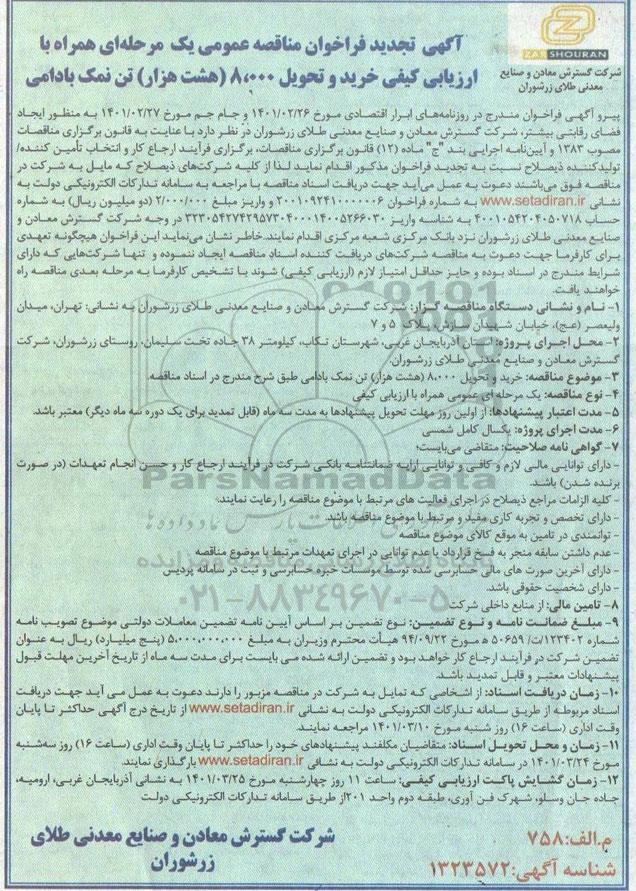 ZAR SHOURAN
شرکت گسترش معادن و صنایع
معدنی طلای زرشوران
آگهی تجدید فراخوان مناقصه عمومی یک مرحله‌ای همراه با
ارزیابی کیفی خرید و تحویل ۸،۰۰۰ (هشت هزار) تن نمک بادامی
پیرو آگهی فراخوان مندرج در روزنامه‌های ابرار اقتصادی مورخ ۱۴۰۱/۰۲/۲۶ و جام جم مورخ ۱۴۰۱/۰۲/۲۷ به منظور ایجاد
فضای رقابتی بیشتر، شرکت گسترش معادن و صنایع معدنی طلای زرشوران در نظر دارد با عنایت به قانون برگزاری مناقصات
مصوب ۱۳۸۳ و آیین‌نامه اجرایی بند "ج" ماده (۱۲) قانون برگزاری مناقصات، برگزاری فرآیند ارجاع کار و انتخاب تأمین کننده/
تولیدکننده ذیصلاح نسبت به تجدید فراخوان مذکور اقدام نماید لذا از کلیه شرکت‌های ذیصلاح که مایل به شرکت در
مناقصه فوق می‌باشند دعوت به عمل می‌آید جهت دریافت اسناد مناقصه با مراجعه به سامانه تدارکات الکترونیکی دولت به
نشانی www.setadiran.ir به شماره فراخوان ۲۰۰۱۰۹۲۴۱۰۰۰۰۰۶ و واریز مبلغ ۲/۰۰۰/۰۰۰ (دو میلیون ریال) به شماره
حساب ۴۰۰۱۰۵۴۲۰۴۰۵۰۷۱۸ به شناسه واریز ۳۲۳۰۵۴۲۷۴۲۹۵۷۳۰۴۰۰۰۱۴۰۰۵۲۶۶۰۳۰ در وجه شرکت گسترش معادن و
صنایع معدنی طلای زرشوران نزد بانک مرکزی شعبه مرکزی اقدام نمایند. خاطر نشان می‌نماید این فراخوان هیچگونه تعهدی
برای کارفرما جهت دعوت به مناقصه شرکت‌های دریافت کننده اسناد مناقصه ایجاد ننموده و تنها شرکت‌هایی که دارای
شرایط مندرج در اسناد بوده و حایز حداقل امتیاز لازم (ارزیابی کیفی) شوند با تشخیص کارفرما به مرحله بعدی مناقصه راه
خواهند یافت.
۱- نام و نشانی دستگاه مناقصه گزار: شرکت گسترش معادن و صنایع معدنی طلای زرشوران به نشانی: تهران، میدان
ولیعصر (عج)، خیابان شهیدان پلاک ۵ و ۷
۲- محل اجرای پروژه: استان آذربایجان غربی، شهرستان تکاب، کیلومتر ۳۸ جاده تخت سلیمان، روستای زرشوران، شرکت
گسترش معادن و صنایع معدنی طلای زرشوران.
۳- موضوع مناقصه: خرید و تحویل ۸،۰۰۰ (هشت هزار) تن نمک بادامی طبق شرح مندرج در اسناد مناقصه.
۴- نوع مناقصه: یک مرحله‌ای عمومی همراه با ارزیابی کیفی
۵- مدت اعتبار پیشنهادها: از اولین روز مهلت تحویل پیشنهادها به مدت سه ماه (قابل تمدید برای یک دوره سه ماه دیگر) معتبر باشد.
۶- مدت اجرای پروژه: یکسال کامل شمسی
۷- گواهی نامه صلاحیت: متقاضی می‌بایست؛
- دارای توانایی مالی لازم و کافی و توانایی ارایه ضمانتنامه بانکی شرکت در فرآیند ارجاع کار و حسن انجام تعهدات (در صورت
برنده شدن) باشد.
- کلیه الزامات مراجع ذیصلاح در اجرای فعالیت های مرتبط با موضوع مناقصه را رعایت نمایند.
- دارای تخصص و تجربه کاری مفید و مرتبط با موضوع مناقصه باشد.
- توانمندی در تامین به موقع کالای موضوع مناقصه
- عدم داشتن سابقه منجر به فسخ قرارداد یا عدم توانایی در اجرای تعهدات مرتبط با موضوع مناقصه
- دارای آخرین صورت های مالی حسابرسی شده توسط موسسات خبره حسابرسی و ثبت در سامانه پردیس
- دارای شخصیت حقوقی باشد.
ParsNamadData
۰۲۱-۸۸۳۴۹۶۷۰-۵
۸- تامین مالی: از منابع داخلی شرکت
۹- مبلغ ضمانت نامه و نوع تضمین: نوع تضمین بر اساس آیین نامه تضمین معاملات دولتی موضوع تصویب نامه
شماره ۱۲۳۴۰۲/ت/ ۵۰۶۵۹ ه مورخ ۹۴/۰۹/۲۲ هیأت محترم وزیران به مبلغ ۵،۰۰۰،۰۰۰،۰۰۰ (پنج میلیارد) ریال به عنوان
تضمین شرکت در فرآیند ارجاع کار خواهد بود و تضمین ارائه شده می بایست برای مدت سه ماه از تاریخ آخرین مهلت قبول
پیشنهادات معتبر و قابل تمدید باشد.
۱۰- زمان دریافت اسناد: از اشخاصی که تمایل به شرکت در مناقصه مزبور را دارند دعوت به عمل می آید جهت دریافت
اسناد مربوطه از طریق سامانه تدارکات الکترونیکی دولت به نشانی www.setadiran.ir از تاریخ درج آگهی حداکثر تا پایان
وقت اداری (ساعت ۱۶) روز شنبه مورخ ۱۴۰۱/۰۳/۱۰ مراجعه نمایند.
۱۱- زمان و محل تحویل اسناد: متقاضیان مکلفند پیشنهادهای خود را حداکثر تا پایان وقت اداری (ساعت ۱۶) روز سه‌شنبه
مورخ ۱۴۰۱/۰۳/۲۴ در سامانه تدارکات الکترونیکی دولت به نشانی www.setadiran.ir بارگذاری نمایند.
۱۲- زمان گشایش پاکت ارزیابی کیفی: ساعت ۱۱ روز چهارشنبه مورخ ۱۴۰۱/۰۳/۲۵ به نشانی آذربایجان غربی، ارومیه،
جاده جان وسلو، شهرک فن آوری، طبقه دوم واحد ۲۰۱ از طریق سامانه تدارکات الکترونیکی دولت
م.الف: ۷۵۸
شناسه آگهی: ۱۳۲۳۵۷۲
شرکت گسترش معادن و صنایع معدنی طلای
زرشوران